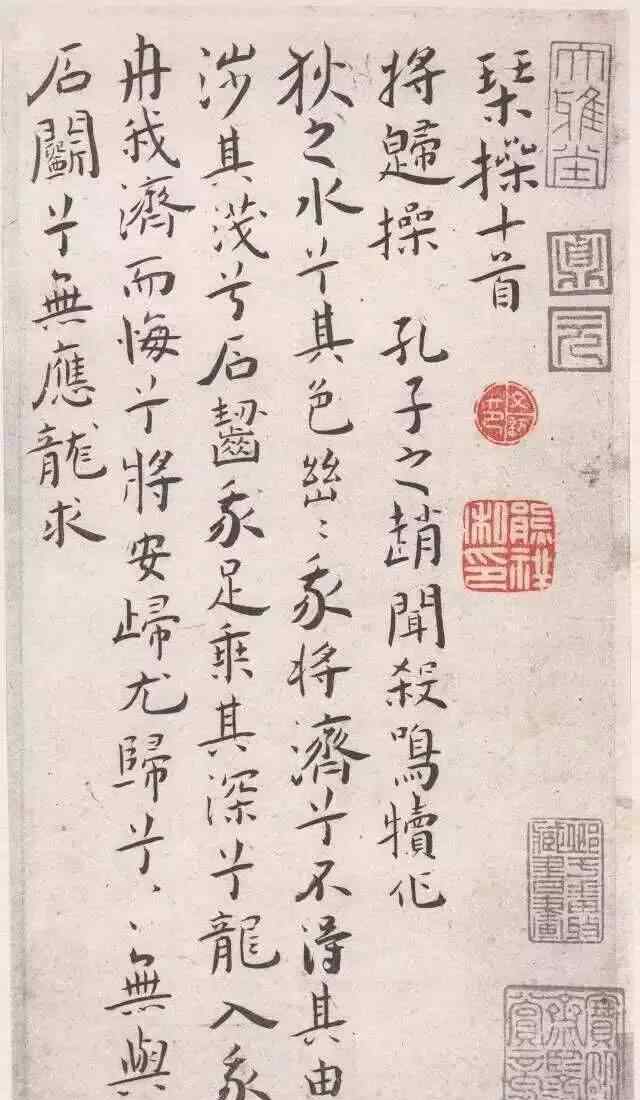 琹操十首
将歸操 孔子之趙聞殺鳴犢作
狄之水兮其色幽〻我将濟兮不得其由
涉其淺兮石齧我足乘其深兮龍入我
舟我濟而悔兮將安歸尤歸兮〻〻無與
石鬭兮無應龍求
大雅堂